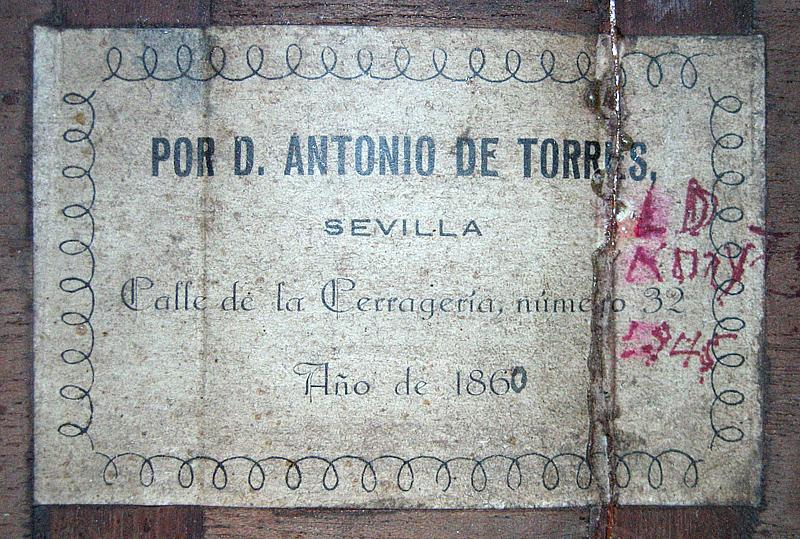 POR D. ANTONIO DE TORRES,
SEVILLA
Calle de la Cerragería, número 32
Año de 1860